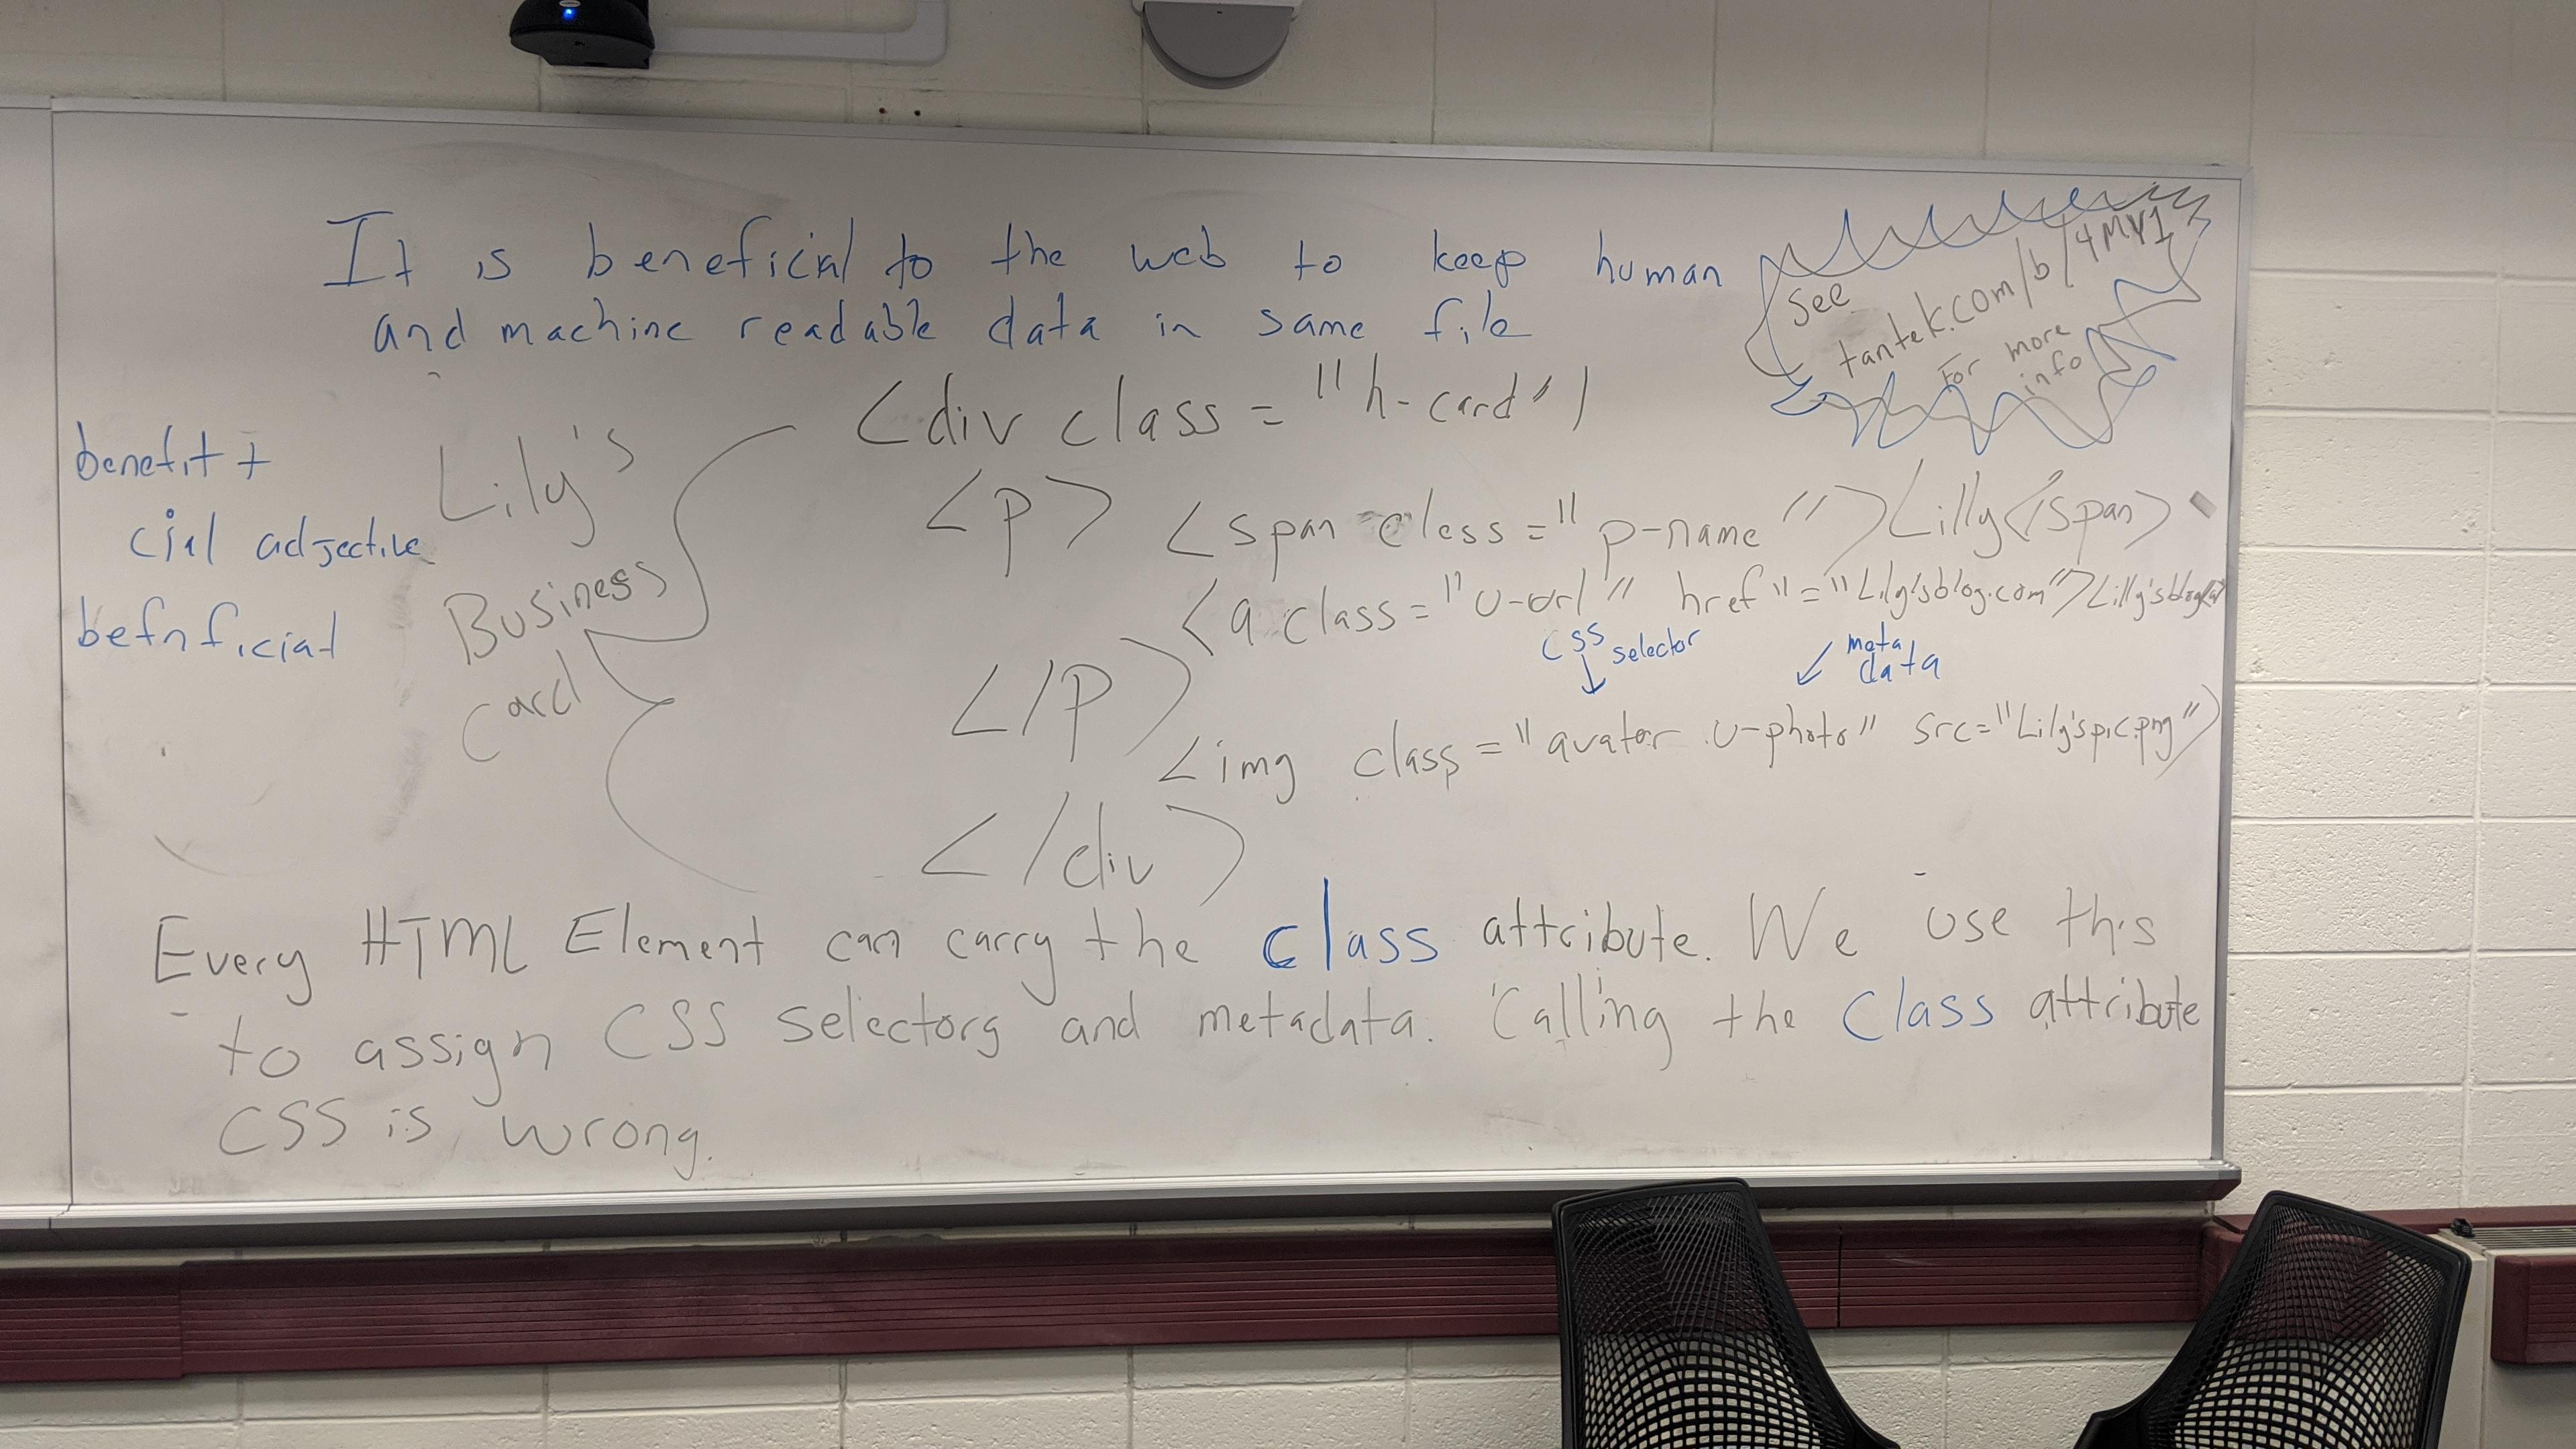 It is beneficial to the web to keep human
and machine readable data in same file
See
tantek.com/b/4MY1
For more
info
benefit +
cial adjective
befnficial
Lily's
Business
Card
<div class = "h-card")
<p> <span class =" p-name ">Lilly</span>
<a class = "u-url" href"="Lily'sblog.com">Lilly'sblog</a
CSS selector
meta
data
</p>
<img class = "avatar u-photo" src="Lily'spic.png">
</div>
Every HTML Element can carry the class attribute. We use this
to assign CSS selectors and metadata. Calling the class attribute
CSS is wrong.